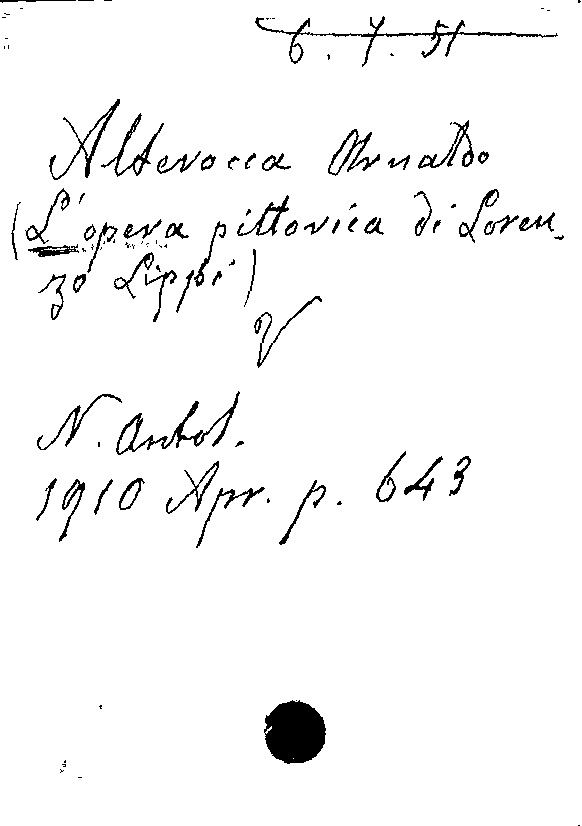 6. 7. 51
Alterocca Arnaldo
(L'opera pittorica di Loren-
zo Lippi)
V
N. Antol.
1910 Apr. p. 643